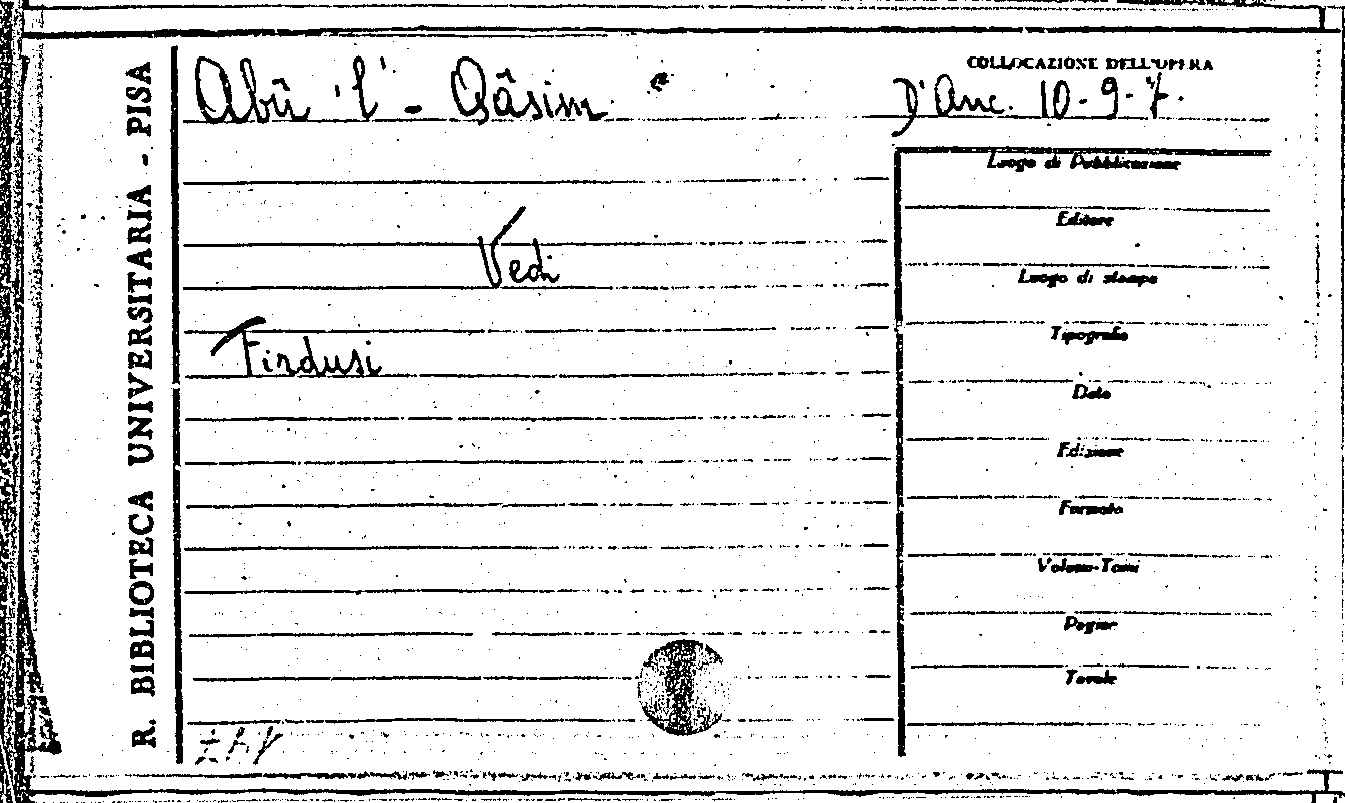 R. BIBLIOTECA UNIVERSITARIA - PISA
Abū 'l' - Qâsim
COLLOCAZIONE DELL'OPERA
D'Anc. 10-9-7.
Vedi
Firdusi
Luogo di Pubblicazione
Editore
Luogo di stampa
Tipografia
Data
Edizione
Formato
Volumi-Tomi
Pagine
Tavole